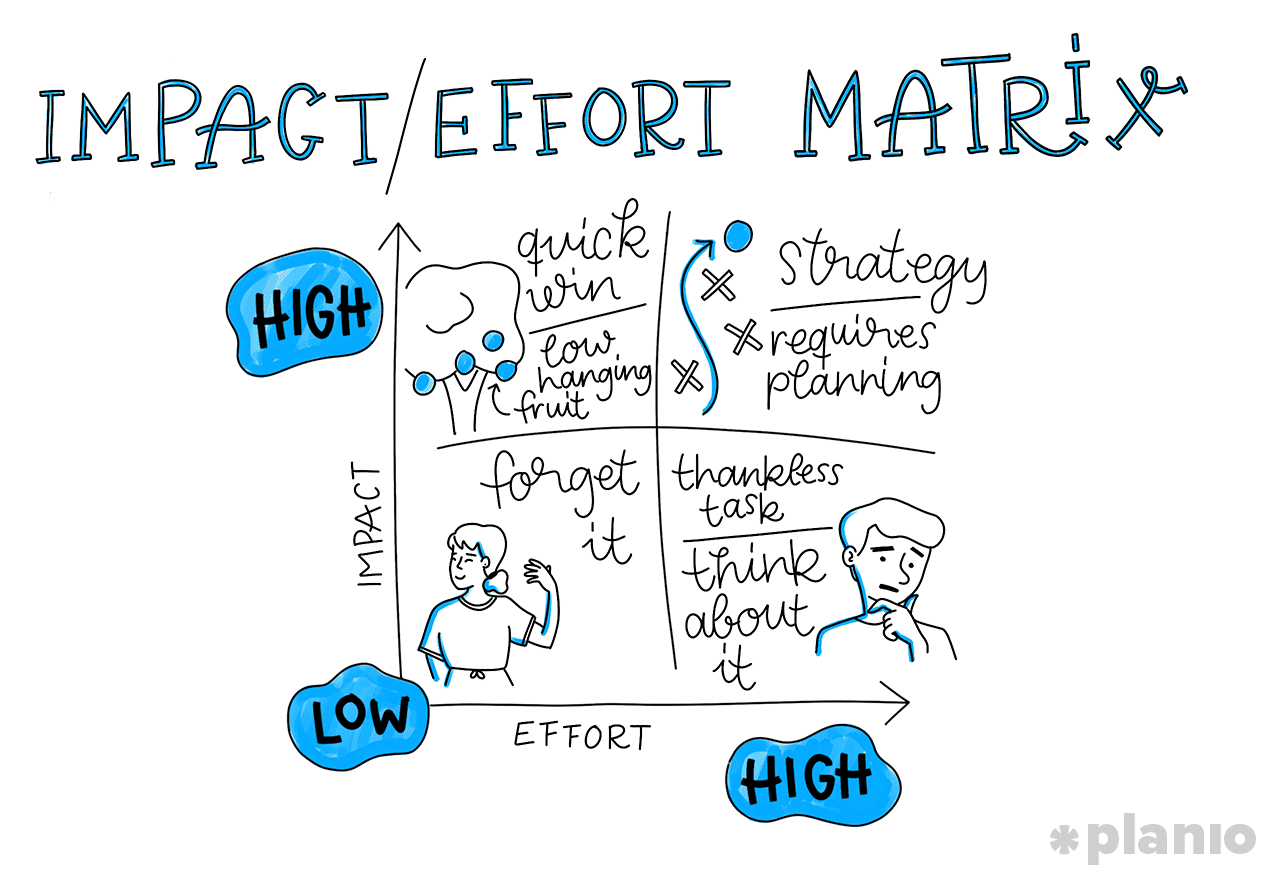 IMPACT/EFFORT MATRiX
HIGH
quick
win
low
hanging
fruit
strategy
requires
planning
IMPACT
forget
it
thankless
task
think
about
it
LOW
EFFORT
HIGH
*planio